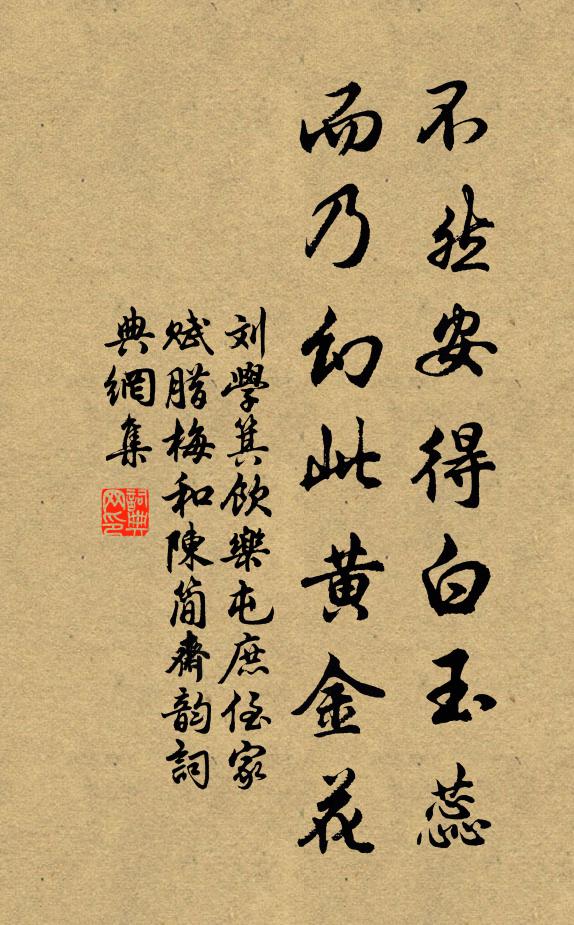 不然安得白玉蕊
而乃幻此黄金花
刘學箕飲樂屯庶侄家
賦腊梅和陳简齋韵詞
典網集
詞典网印